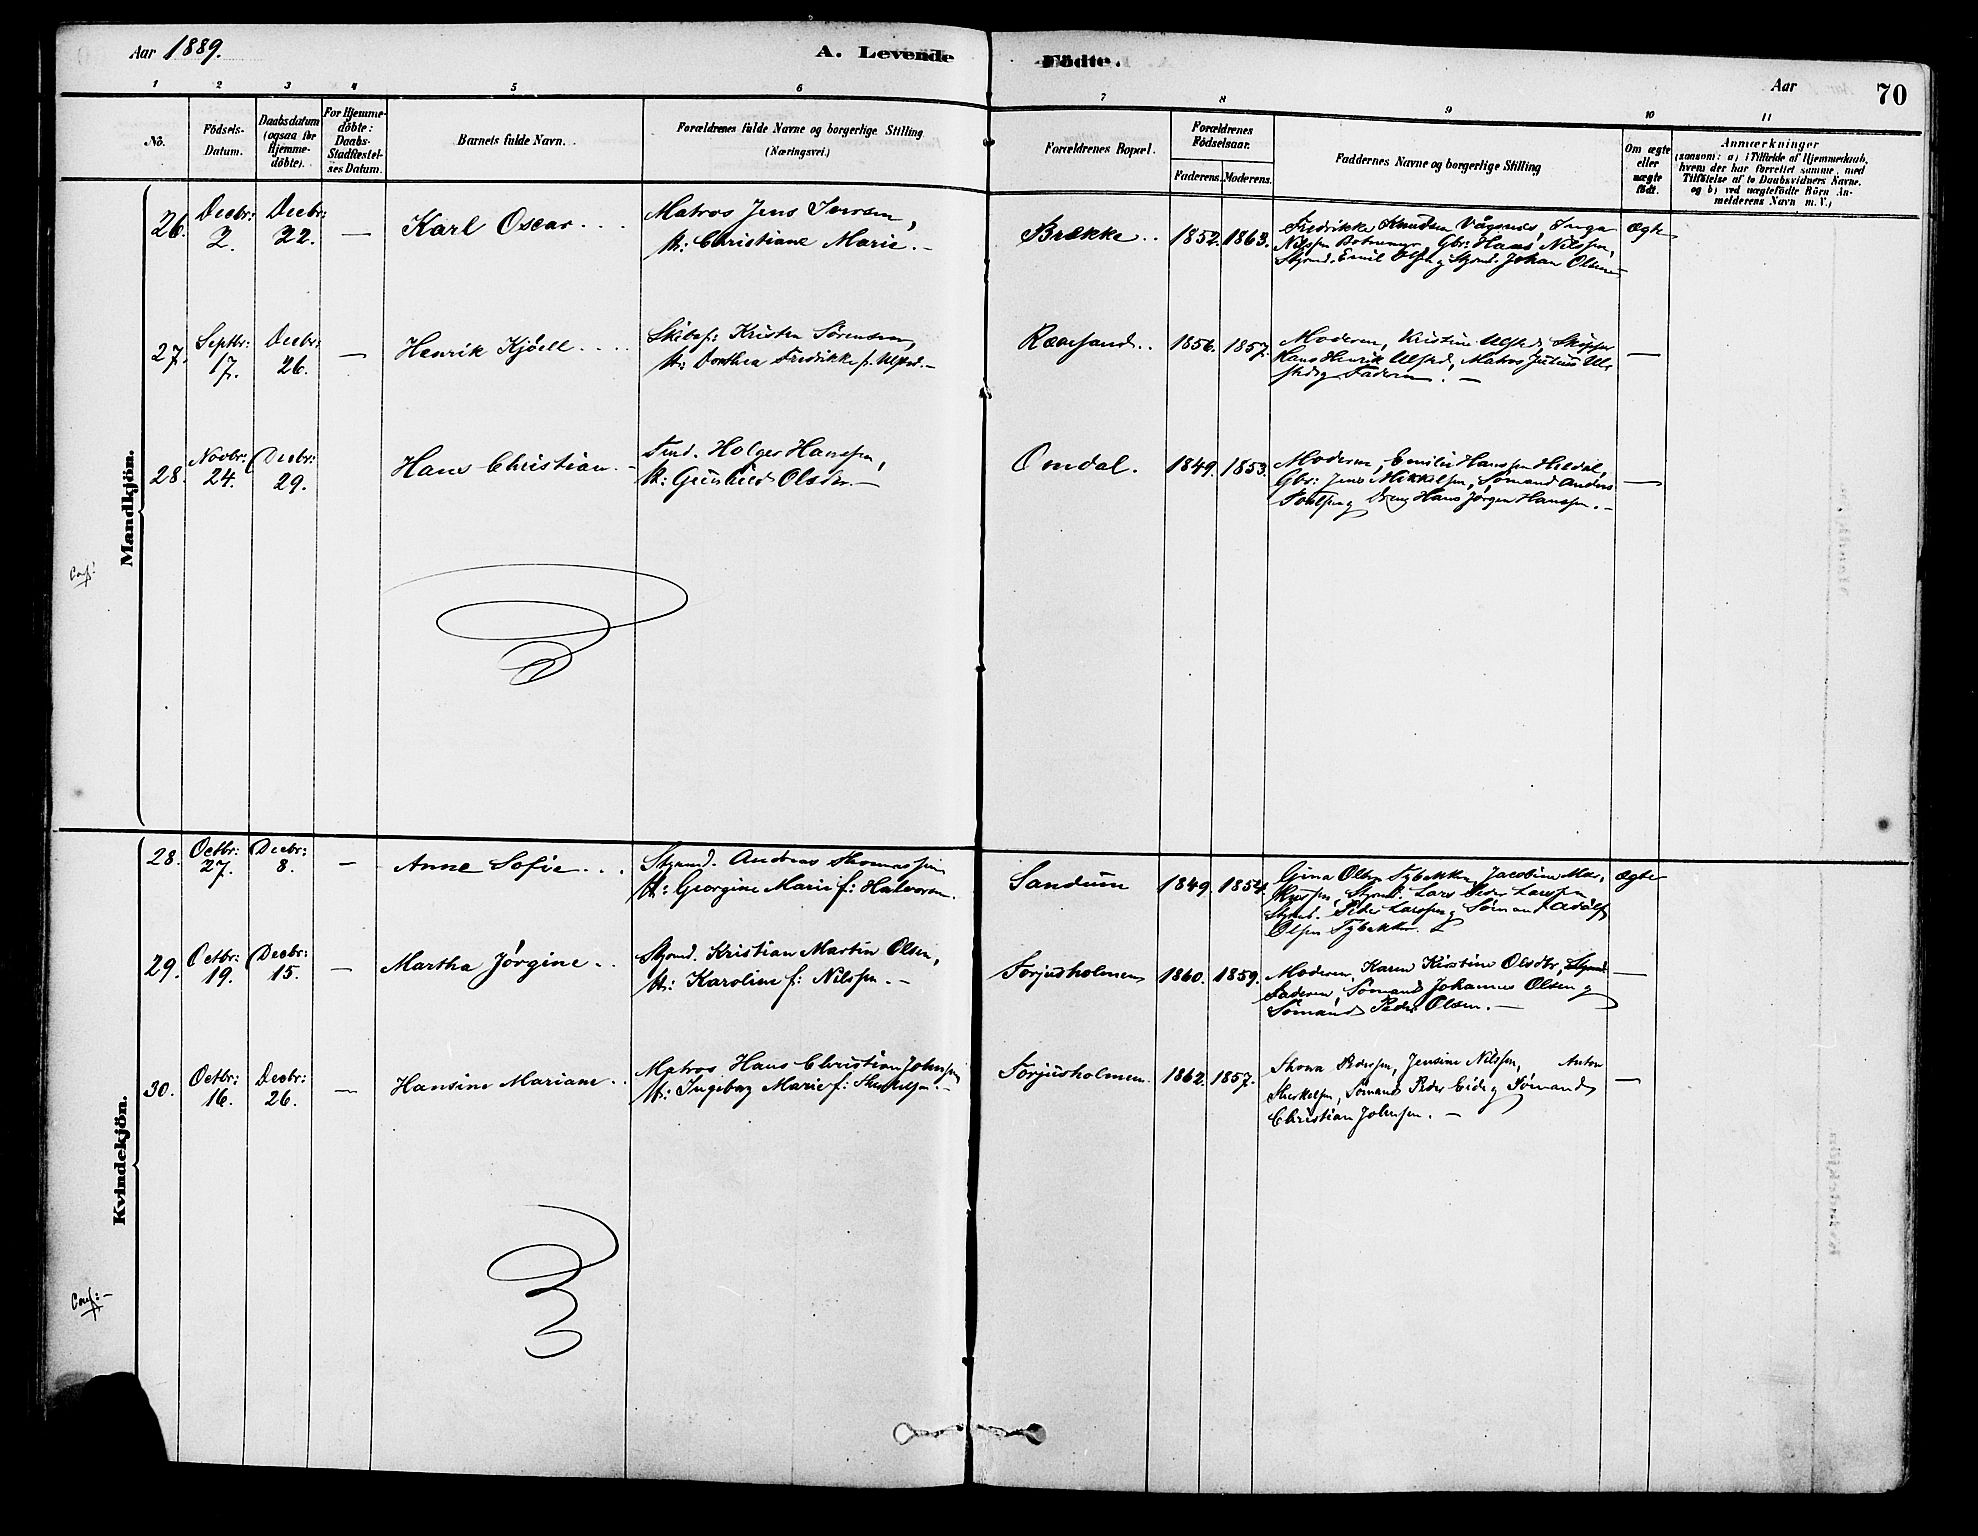 Aar 1889.
A. Levende Födte.
Aar
70
1 2 3 4 5 6 7 8 9 10 11
No.
Födsels-
Datum.
Daabsdatum
(ogsaa for
Hjemme-
döbte).
For Hjemme-
döbte:
Daabs-
Stadfæstel-
ses Datum.
Barnets fulde Navn.
Forældrenes fulde Navne og borgerlige Stilling
(Næringsvei.)
Forældrenes Bopæl.
Forældrenes
Födselsaar.
Faderens. Moderens.
Faddernes Navne og borgerlige Stilling
Om ægte
eller
uægte
födt.
Anmærkninger
(saasom: a) i Tilfælde af Hjemmedaab,
hvem der har forrettet samme, med
Tilföielse af to Daabsvidners Navne.
og b) ved uægtefödte Börn An-
melderens Navn m. V.)
Mandkjön.
26. Decbr: 2. Decbr: 22. — Karl Oscar
Matros Jens
H: Christiane Marie. —
Brække 1852. 1863.
Fredrikke Knudsen Vågsnes, Inga
Nilssen Gbr: Hans Nilssen,
Styrmd. Emil Olsen og Styrmd. Johan Olsen
Ægte
27. Septbr: 17. Decbr: 26. — Henrik Kjöell
Skibsf: Kristen Sörensen,
H: Dorthea Fredrikke f. Ulsted. —
Ræesand 1856. 1857.
Moderen, Kristine Ulsted, Skipper
Hans Henrik Ulsted, Matros Julius Ul-
sted og Faderen. —
—
28. Novbr: 24. Decbr: 29. Hans Christian. —
Tmd. Holger Hanssen,
H: Gunhild Olsdtr. —
Omdal. 1849. 1853.
Moderen, Emilie Hanssen Hildal,
Gbr: Jens Mikkelsen, Sömand Anders
og Dreng Hans Jörgen Hanssen. —
—
Conf:
Kvindekjön.
28. Octbr: 27. Decbr: 8. — Anne Sofie
Styrmd. Andreas Thomassen
H: Georgine Marie f: Halvorsen.
Sandum 1849. 1854.
Gina Olsen Tybakken, Jacobine Mar-
kussen, Styrmd: Lars Peder Larssen
Styrmd. Peder Larssen og Sömand Adolf
Olsen Tybakken.
Ægte
29. Octbr: 19. Decbr: 15. — Martha Jörgine
Styrmd. Kristian Martin Olsen,
H: Karoline f: Nilssen. —
Torjusholmen 1860. 1859.
Moderen, Karen Kirstine Olsdtr, Styrmd
Faderen, Sömand Johannes Olsen og
Sömand Peder Olsen. —
—
30. Octbr: 16. Decbr: 26. — Hansine Mariane
Matros Hans Christian Johnsen,
H: Ingeborg Marie f: Therkelsen —
Torjusholmen. 1862. 1857.
Thora Pedersen, Jensine Nilssen, Anton
Therkelsen, Sömand Peder Eide og Sömand
Christian Johnsen. —
—
Conf: —